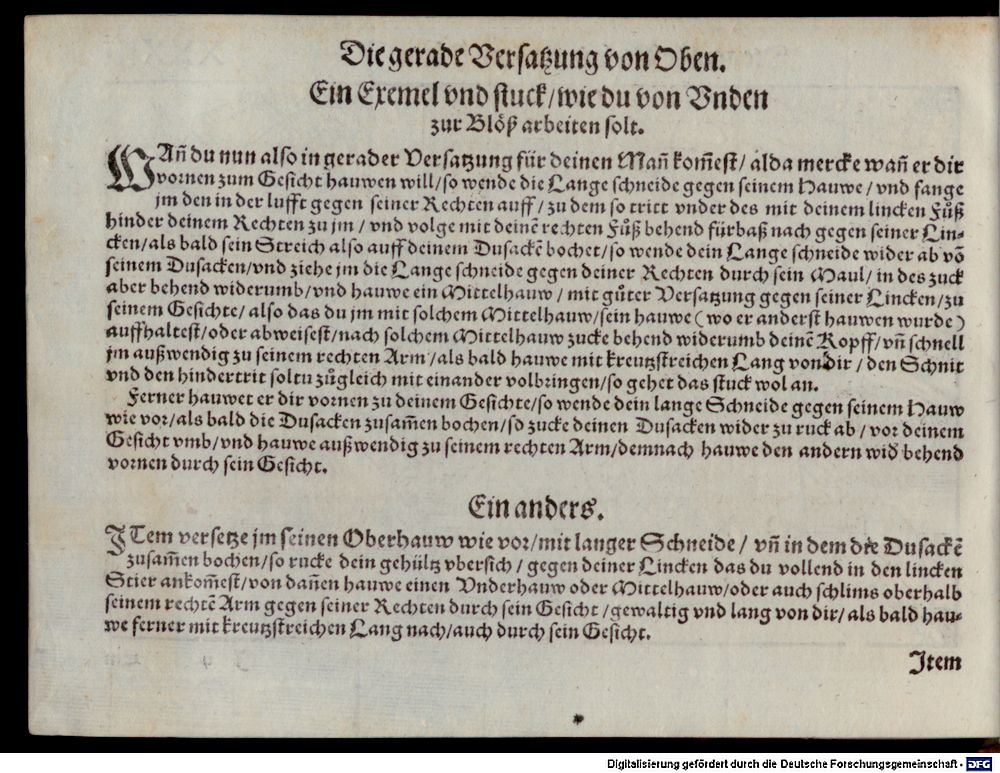 Die gerade Versatzung von Oben.
Ein Exemel vnd stuck/wie du von Vnden
zur Blöß arbeiten solt.
WAñ du nun also in gerader Versatzung für deinen Mañ kom̃est/ alda mercke wañ er dir
vornen zum Gesicht hauwen will/so wende die Lange schneide gegen seinem Hauwe/ vnd fange
jm den in der lufft gegen seiner Rechten auff/ zu dem so tritt vnder des mit deinem lincken Fůß
hinder deinem Rechten zu jm/ vnd volge mit deinẽ rechten Fůß behend fürbaß nach gegen seiner Lin-
cken/als bald sein Streich also auff deinem Dusackẽ bochet/so wende dein Lange schneide wider ab võ
seinem Dusacken/vnd ziehe jm die Lange schneide gegen deiner Rechten durch sein Maul/ in des zuck
aber behend widerumb/vnd hauwe ein Mittelhauw/ mit gůter Versatzung gegen seiner Lincken/zu
seinem Gesichte/ also das du jm mit solchem Mittelhauw/sein hauwe (wo er anderst hauwen wurde)
auffhaltest/oder abweisest/nach solchem Mittelhauw zucke behend widerumb deinẽ Kopff/vñ schnell
jm außwendig zu seinem rechten Arm/als bald hauwe mit kreutzstreichen Lang von dir/ den Schnit
vnd den hindertrit soltu zůgleich mit einander volbringen/so gehet das stuck wol an.
Ferner hauwet er dir vornen zu deinem Gesichte/so wende dein lange Schneide gegen seinem Hauw
wie vor/als bald die Dusacken zusam̃en bochen/so zucke deinen Dusacken wider zu ruck ab/ vor deinem
Gesicht vmb/vnd hauwe außwendig zu seinem rechten Arm/demnach hauwe den andern wid̕ behend
vornen durch sein Gesicht.
Ein anders.
ITem versetze jm seinen Oberhauw wie vor/mit langer Schneide/ vñ in dem die Dusackẽ
zusam̃en bochen/so rucke dein gehültz vbersich/ gegen deiner Lincken das du vollend in den lincken
Stier ankom̃est/von dañen hauwe einen Vnderhauw oder Mittelhauw/oder auch schlims oberhalb
seinem rechtẽ Arm gegen seiner Rechten durch sein Gesicht/gewaltig vnd lang von dir/ als bald hau-
we ferner mit kreutzstreichen Lang nach/auch durch sein Gesicht.
Item
Digitalisierung gefördert durch die Deutsche Forschungsgemeinschaft - DFG